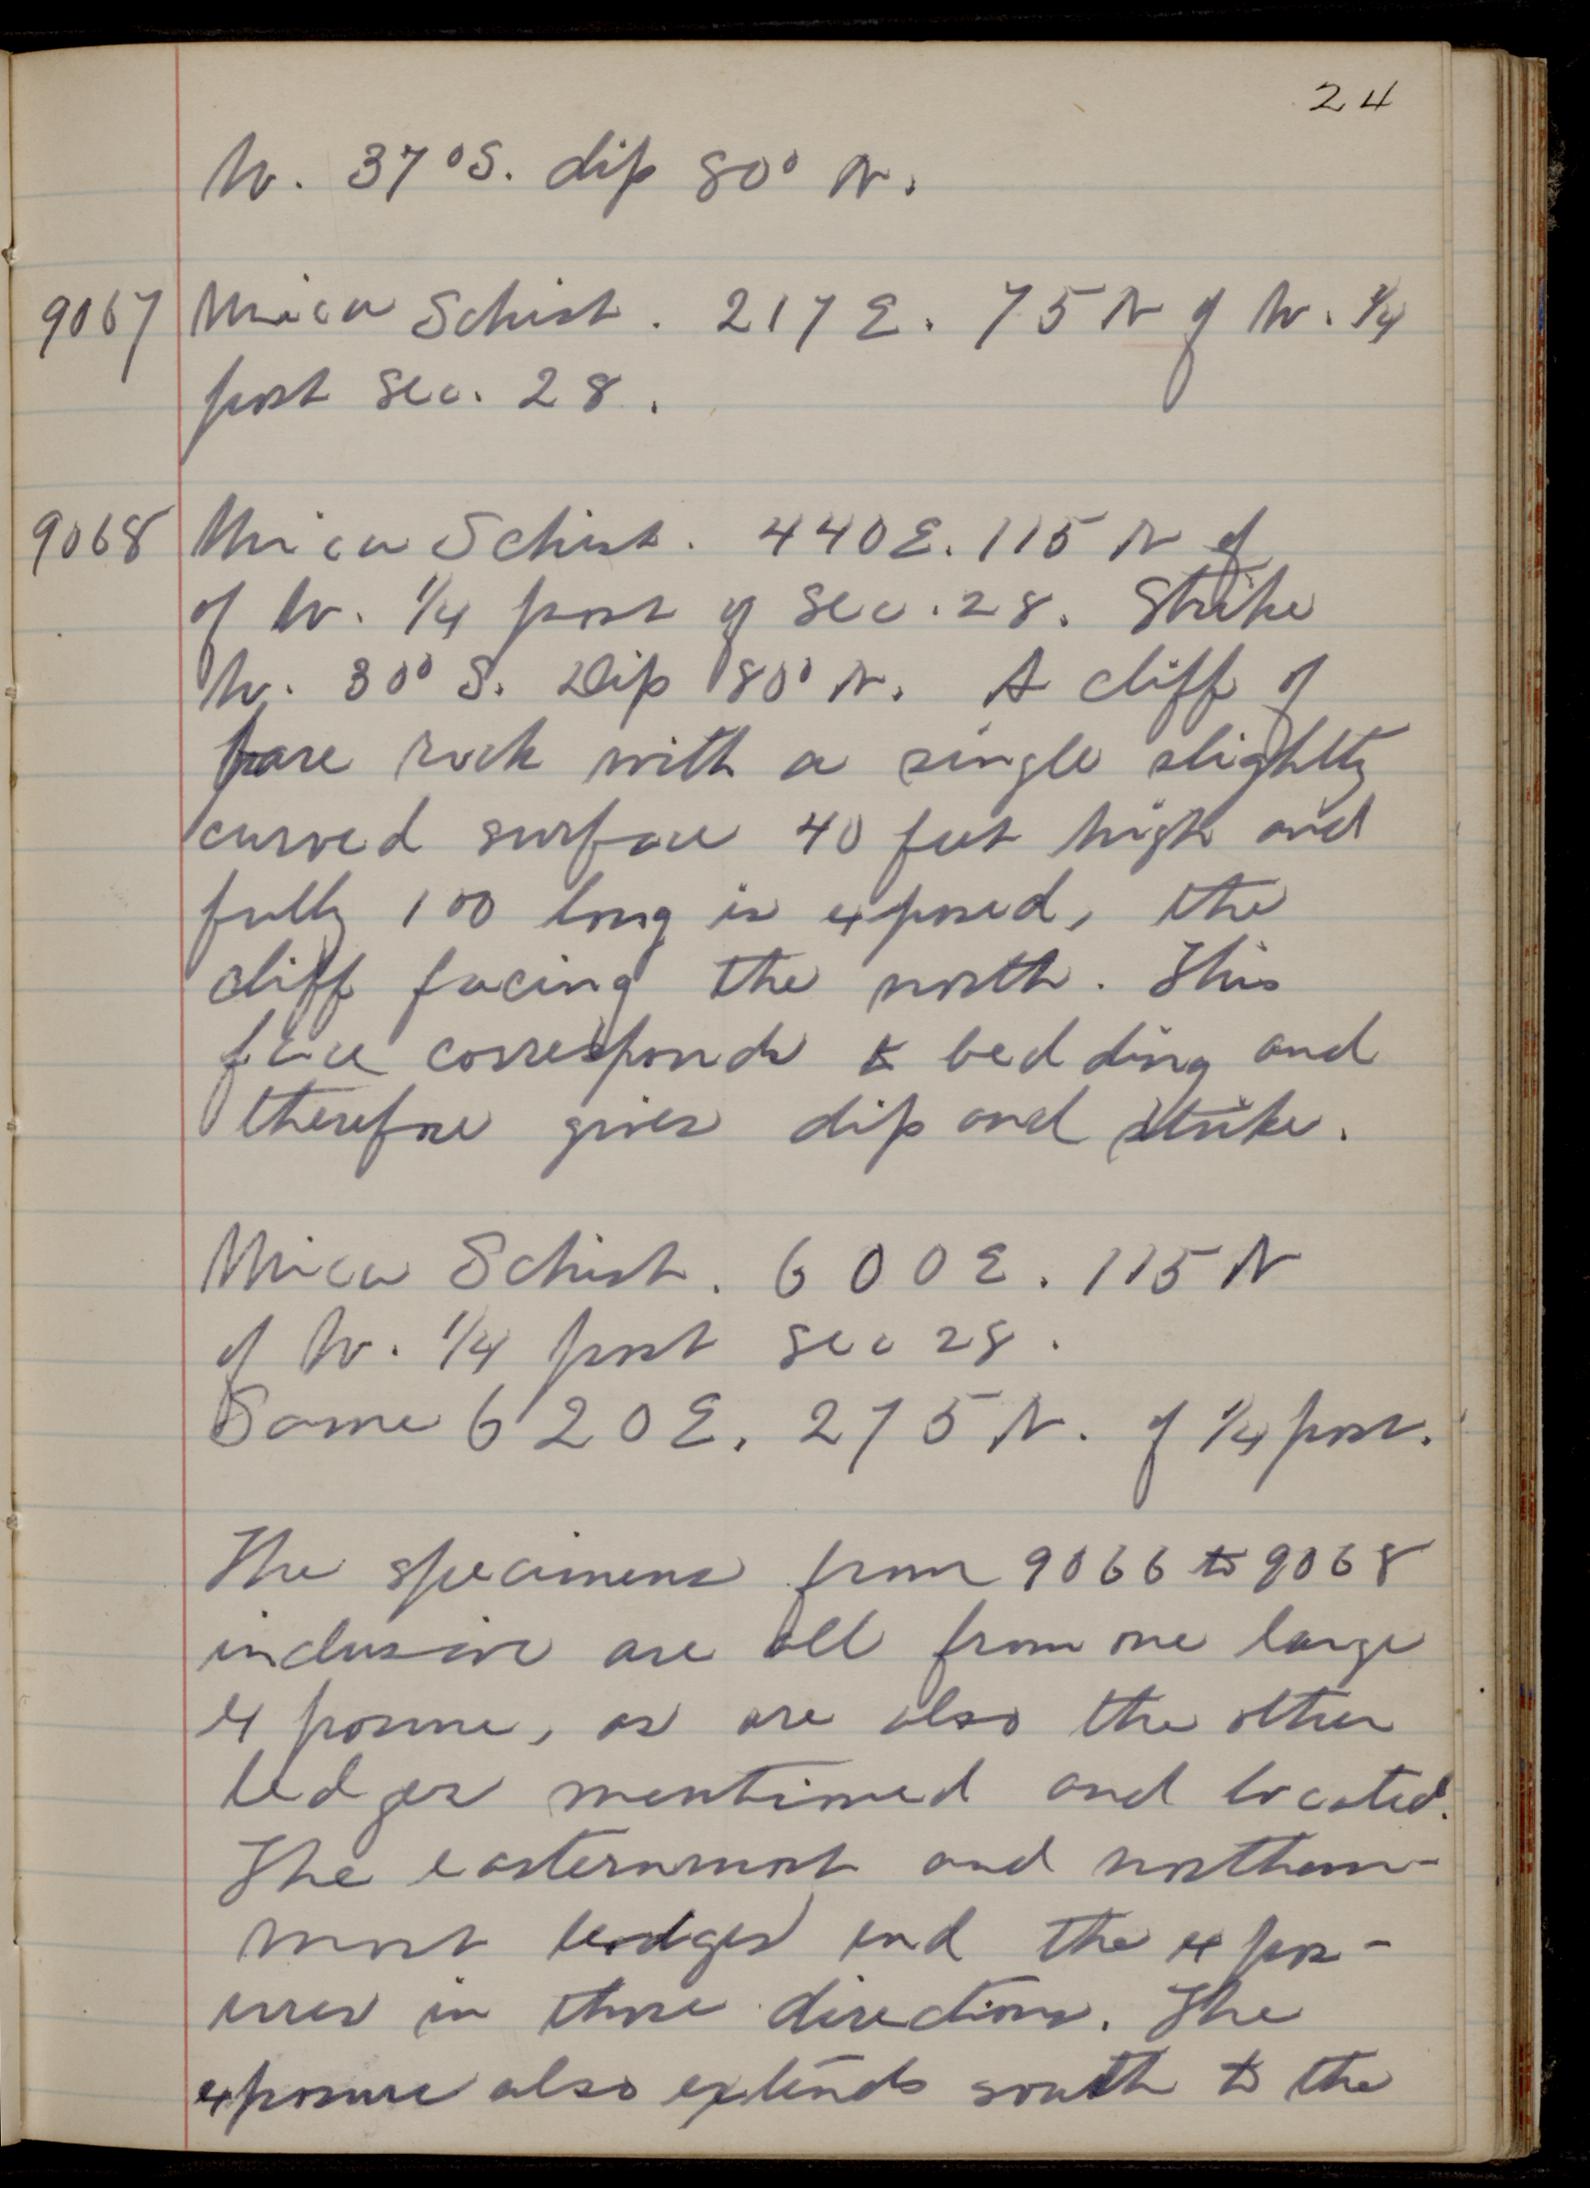 24
W. 37° S. dip 80° N.
9067 Mica Schist. 217 E. 75 N of W. 1/4
post Sec. 28.
9068 Mica Schist. 440 E. 115 N of
of W. 1/4 post of Sec. 28. Strike
W. 30° S. Dip 80° N. A cliff of
bare rock with a single slightly
curved surface 40 feet high and
fully 100 long is exposed, the
cliff facing the north. This
face corresponds to bedding and
therefore gives dip and strike.
Mica Schist. 600 E. 115 N
of W. 1/4 post Sec 28.
Same 620 E. 275 N. of 1/4 post.
The specimens from 9066 to 9068
inclusive are all from one large
exposure, as are also the other
ledges mentioned and located.
The easternmost and northern-
most ledges end the expos-
ures in those directions. The
exposure also extends south to the